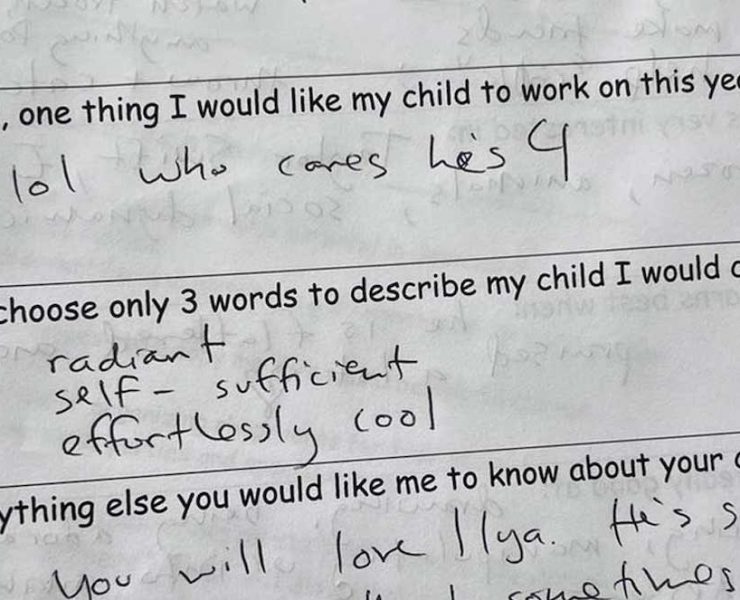 , one thing I would like my child to work on this ye
lol who cares he's 4
choose only 3 words to describe my child I would c
radiant
self- sufficient
effortlessly cool
ything else you would like me to know about your c
You will love Ilya. He's s
sometimes